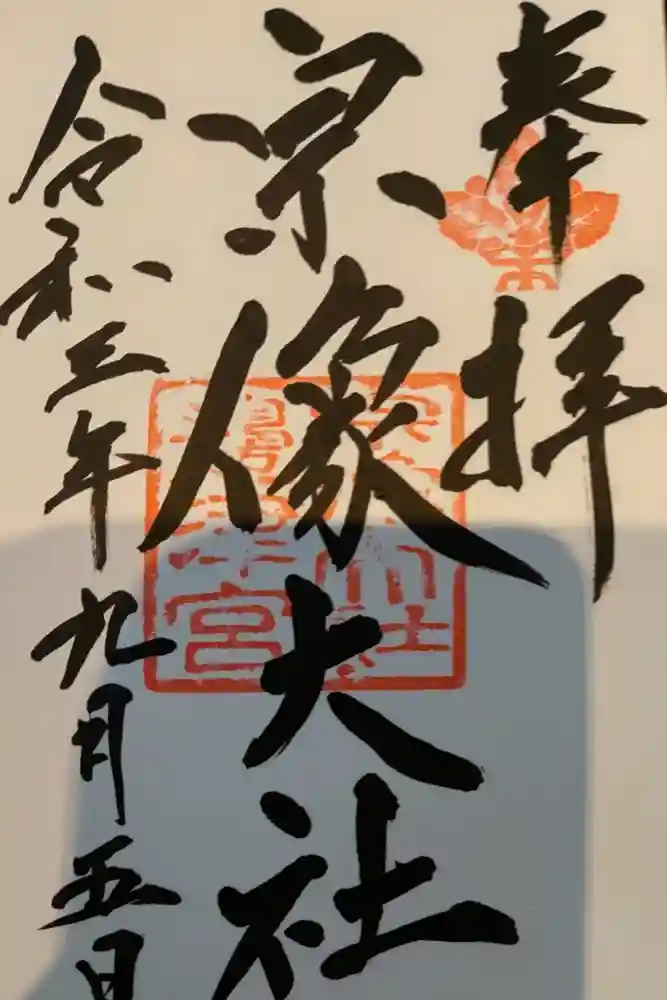 奉拝
宗像大社
令和三年九月五日
宗像大社
邊津宮